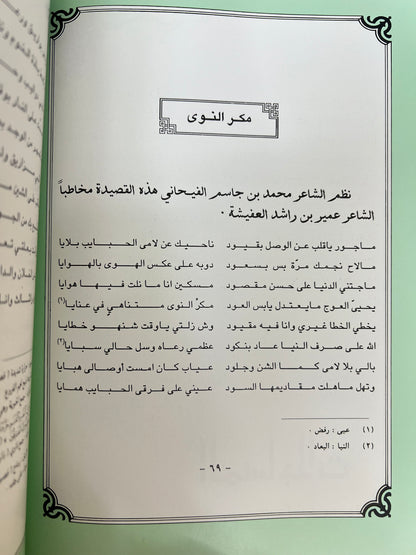 مكر النوى
نظم الشاعر محمد بن جاسم الفيحاني هذه القصيدة مخاطباً
الشاعر عمير بن راشد العفيشة ·
ماجور ياقلب عن الوصل بقيود ناحيك عن لامى الحبايب بلايا
مالاح نجمك مرّة بس بسعود دوبه على عكس الهوى بالهوايا
ماجتني الدنيا على حسن مقصود مسكين انا ما نلت فيها هوايا
يحيىّ العوج مايعتدل يابس العود مكرّ النوى متناهي في عنايا(١)
يخطي الخطا غيري وانا فيه مقيود وش زلتي ياوقت شنهو خطايا
الله على صرف النيا عاد بنكود عظمي رعاه وسل حالي سبايا(٢)
بالي بلا لامى كما الشن وجلود عياب كان امست أوصالى هبايا
وتهل ماهلت مقاديمها السود عيني على فرقى الحبايب همايا
(١) عيى : رفض ·
(٢) النيا : البعاد ·
- ٦٩ -